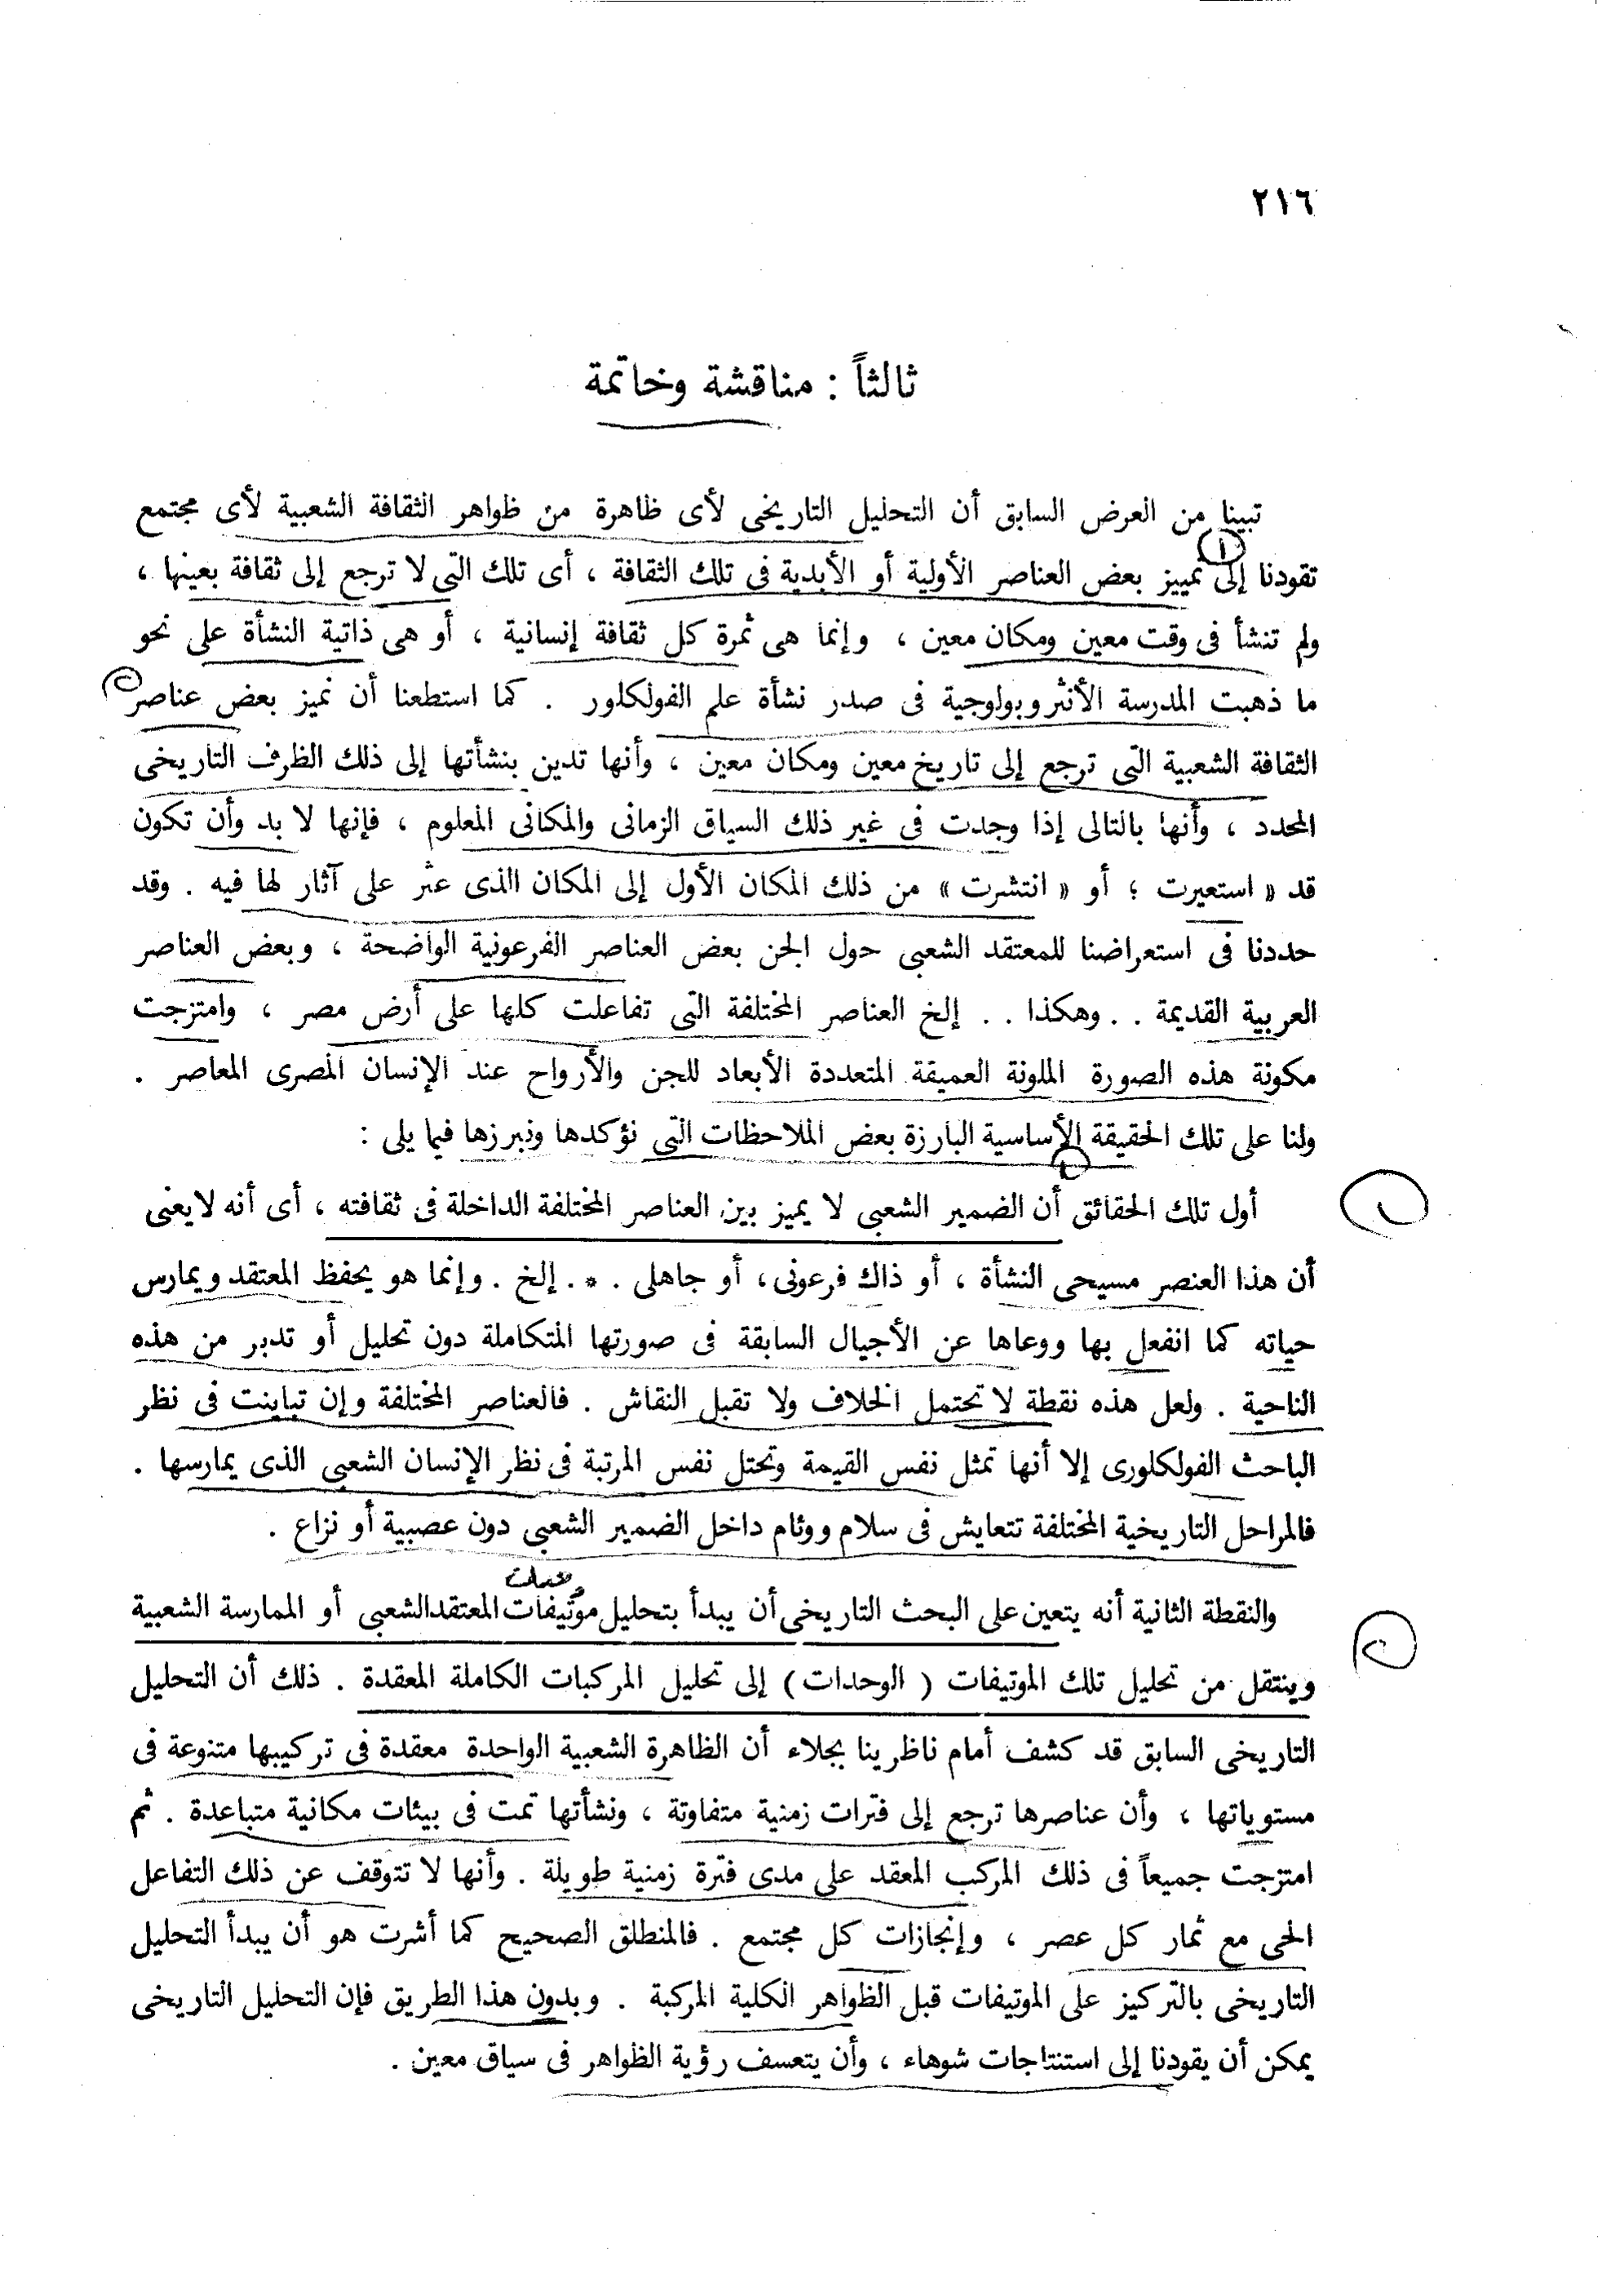 ٢١٦
ثالثاً : مناقشة وخاتمة
تبينا من العرض السابق أن التحليل التاريخى لأى ظاهرة من ظواهر الثقافة الشعبية لأى مجتمع
تقودنا إلى تمييز بعض العناصر الأولية أو الأبدية فى تلك الثقافة ، أى تلك التى لا ترجع إلى ثقافة بعينها ،
ولم تنشأ فى وقت معين ومكان معين ، وإنما هى ثمرة كل ثقافة إنسانية ، أو هى ذاتية النشأة على نحو
ما ذهبت المدرسة الأنثروبولوجية فى صدر نشأة علم الفولكلور . كما استطعنا أن نميز بعض عناصر
الثقافة الشعبية التى ترجع إلى تاريخ معين ومكان معين ، وأنها تدين بنشأتها إلى ذلك الظرف التاريخى
المحدد ، وأنها بالتالى إذا وجدت فى غير ذلك السياق الزمانى والمكانى المعلوم ، فإنها لا بد وأن تكون
قد « استعيرت ؛ أو « انتشرت » من ذلك المكان الأول إلى المكان االذى عثر على آثار لها فيه . وقد
حددنا فى استعراضنا للمعتقد الشعبى حول الجن بعض العناصر الفرعونية الواضحة ، وبعض العناصر
العربية القديمة . . وهكذا . . إلخ العناصر المختلفة التى تفاعلت كلها على أرض مصر ، وامتزجت
مكونة هذه الصورة الملونة العميقة المتعددة الأبعاد للجن والأرواح عند الإنسان المصرى المعاصر .
ولنا على تلك الحقيقة الأساسية البارزة بعض الملاحظات التى نؤكدها ونبرزها فيما يلى :
أول تلك الحقائق أن الضمير الشعبى لا يميز بين العناصر المختلفة الداخلة فى ثقافته ، أى أنه لايعنى
أن هذا العنصر مسيحى النشأة ، أو ذاك فرعونى، أو جاهلى . * . إلخ . وإنما هو يحفظ المعتقد ويمارس
حياته كما انفعل بها ووعاها عن الأجيال السابقة فى صورتها المتكاملة دون تحليل أو تدبر من هذه
الناحية . ولعل هذه نقطة لا تحتمل الخلاف ولا تقبل النقاش . فالعناصر المختلفة وإن تباينت فى نظر
الباحث الفولكلورى إلا أنها تمثل نفس القيمة وتحتل نفس المرتبة فى نظر الإنسان الشعبى الذى يمارسها .
فالمراحل التاريخية المختلفة تتعايش فى سلام ووئام داخل الضمير الشعبى دون عصبية أو نزاع .
والنقطة الثانية أنه يتعين على البحث التاريخى أن يبدأ بتحليل موتيفات المعتقدالشعبى أو الممارسة الشعبية
وينتقل من تحليل تلك الموتيفات ( الوحدات ) إلى تحليل المركبات الكاملة المعقدة . ذلك أن التحليل
التاريخى السابق قد كشف أمام ناظرينا بجلاء أن الظاهرة الشعبية الواحدة معقدة فى تركيبها متنوعة فى
مستوياتها ، وأن عناصرها ترجع إلى فترات زمنية متفاوتة ، ونشأتها تمت فى بيئات مكانية متباعدة . ثم
امتزجت جميعاً فى ذلك المركب المعقد على مدى فترة زمنية طويلة . وأنها لا تتوقف عن ذلك التفاعل
الحى مع ثمار كل عصر ، وإنجازات كل مجتمع . فالمنطلق الصحيح كما أشرت هو أن يبدأ التحليل
التاريخى بالتركيز على الموتيفات قبل الظواهر الكلية المركبة . وبدون هذا الطريق فإن التحليل التاريخى
يمكن أن يقودنا إلى استنتاجات شوهاء ، وأن يتعسف رؤية الظواهر فى سياق معين .